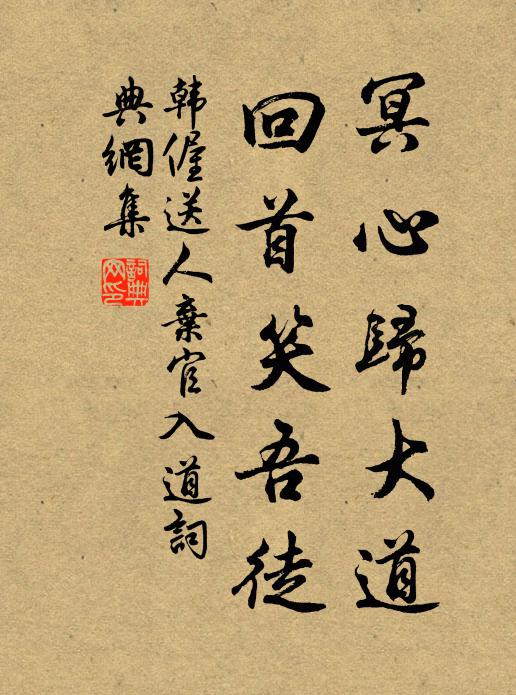 冥心歸大道
回首笑吾徒
韩偓送人棄官入道詞
典網集
詞典網印